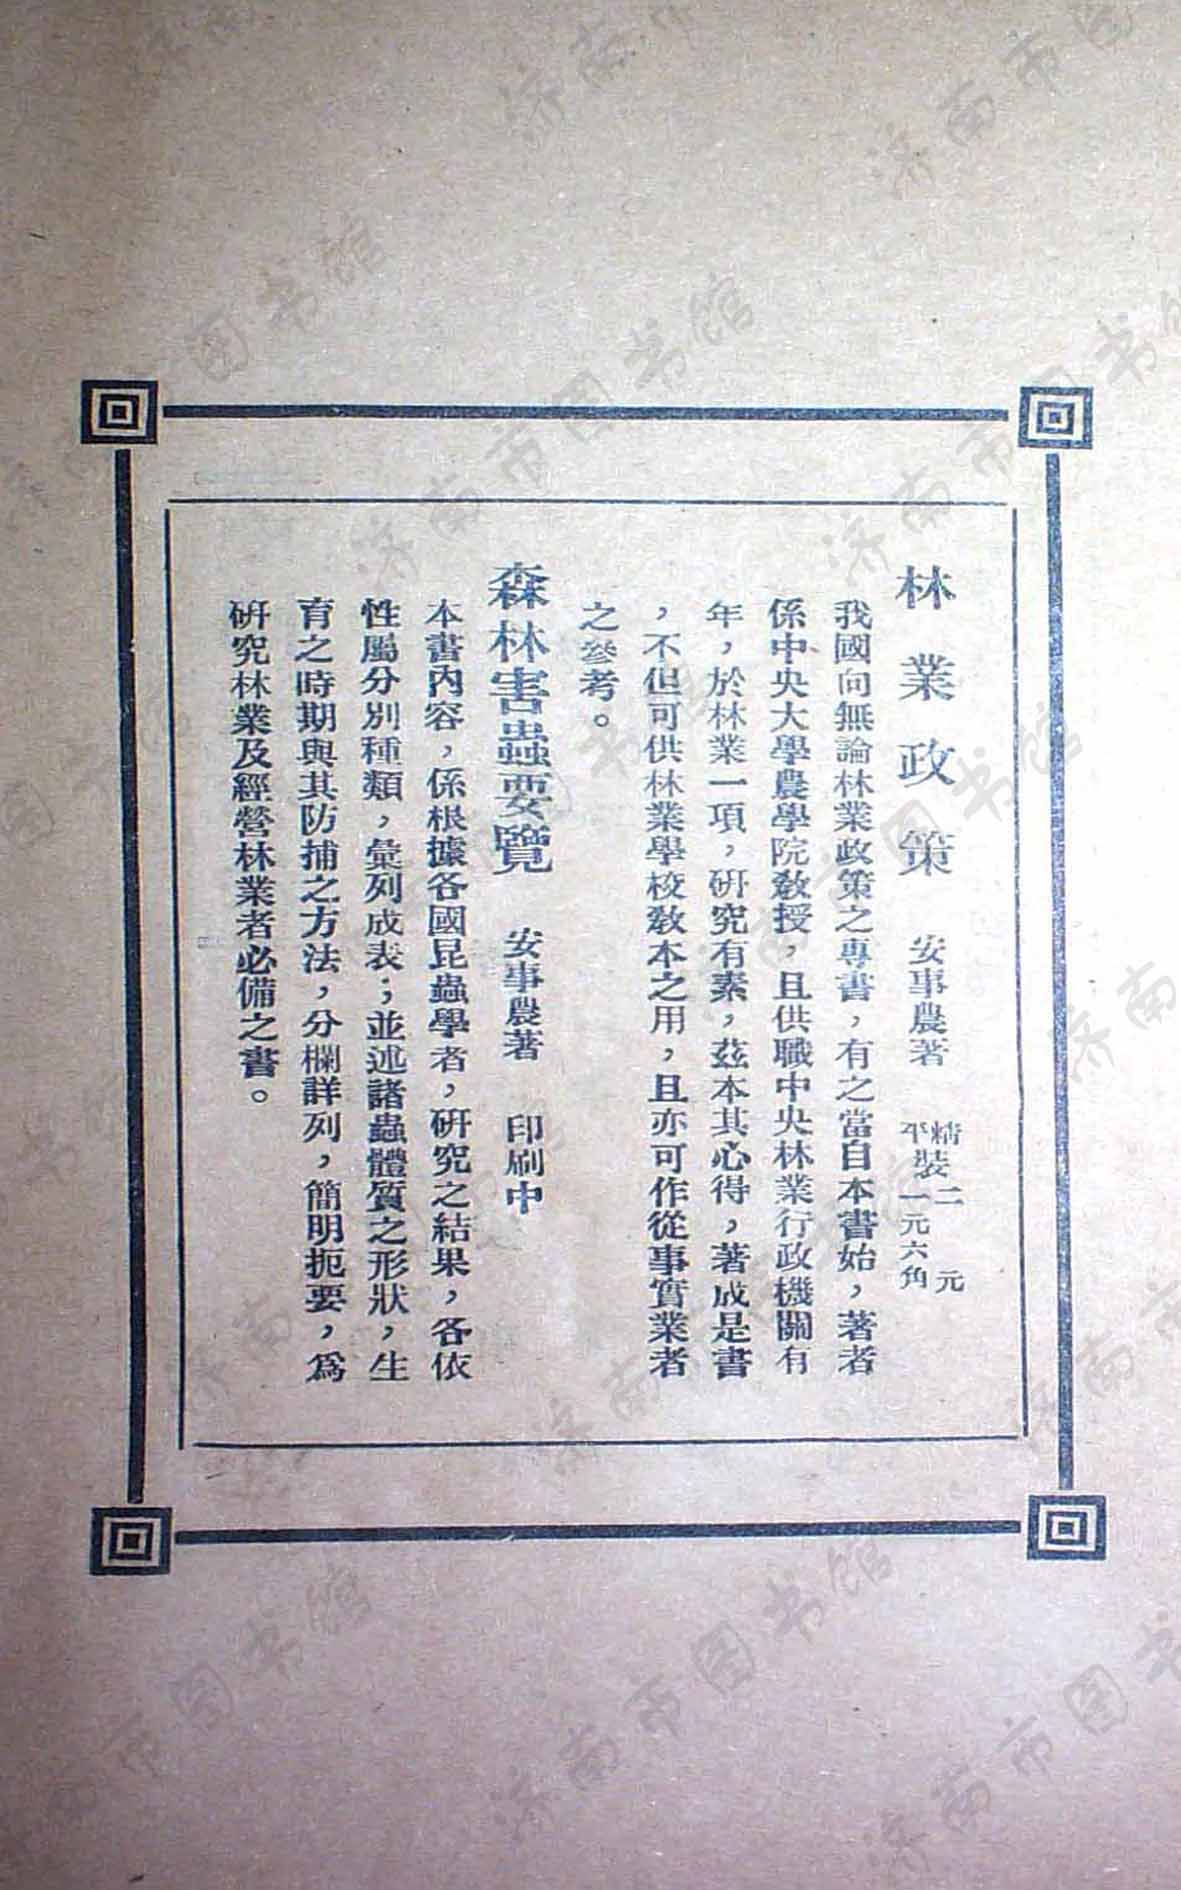 林業政策　安事農著　精裝二元　平裝一元六角
我國向無論林業政策之專書，有之當自本書始，著者
係中央大學農學院教授，且供職中央林業行政機關有
年，於林業一項，研究有素，茲本其心得，著成是書
，不但可供林業學校教本之用，且亦可作從事實業者
之參考。
森林害蟲要覽　安事農著　印刷中
本書內容，係根據各國昆蟲學者，研究之結果，各依
性屬分別種類，彙列成表；並述諸蟲體質之形狀，生
育之時期與其防捕之方法，分欄詳列，簡明扼要，爲
研究林業及經營林業者必備之書。
济南市图书馆